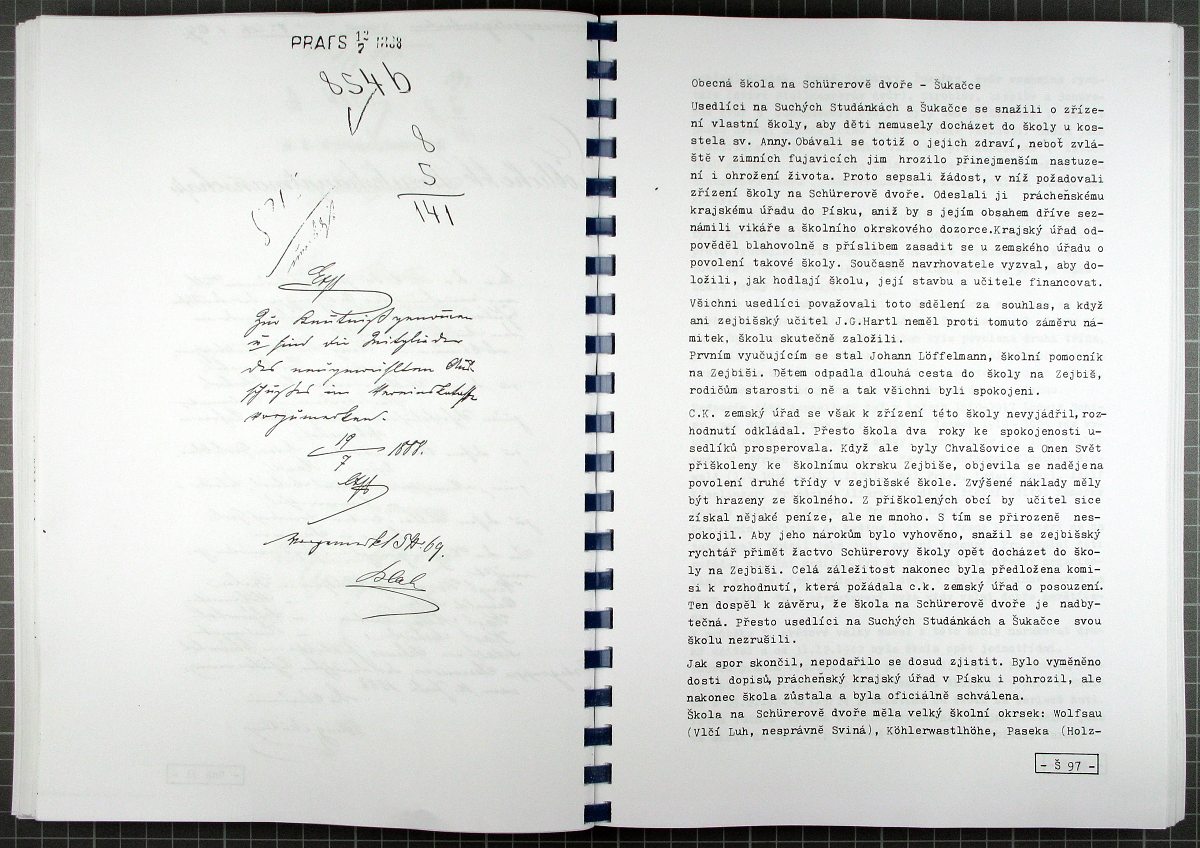 PRAES 12/7 1888
854 b
8
5
141
Zur Kenntniß genommen
u sind die Mitglieder
des neugewählten Aus
schußes im Vereinskataster
vorzumerken.
19/7 1888.
Vorgemerkt 5 69.
Obecná škola na Schürerově dvoře - Šukačce
Usedlíci na Suchých Studánkách a Šukačce se snažili o zříze-
ní vlastní školy, aby děti nemusely docházet do školy u kos-
stela sv. Anny. Obávali se totiž o jejich zdraví, neboť zvlá-
ště v zimních fujavicích jim hrozilo přinejmenším nastuze-
ní i ohrožení života. Proto sepsali žádost, v níž požadovali
zřízení školy na Schürerově dvoře. Odeslali ji prácheňskému
krajskému úřadu do Písku, aniž by s jejím obsahem dříve sez-
námili vikáře a školního okrskového dozorce.Krajský úřad od-
pověděl blahovolně s příslibem zasadit se u zemského úřadu o
povolení takové školy. Současně navrhovatele vyzval, aby do-
ložili, jak hodlají školu, její stavbu a učitele financovat.
Všichni usedlíci považovali toto sdělení za souhlas, a když
ani zejbišský učitel J.G.Hartl neměl proti tomuto záměru ná-
mitek, školu skutečně založili.
Prvním vyučujícím se stal Johann Löffelmann, školní pomocník
na Zejbiši. Dětem odpadla dlouhá cesta do školy na Zejbiš,
rodičům starosti o ně a tak všichni byli spokojeni.
C.K. zemský úřad se však k zřízení této školy nevyjádřil,roz-
hodnutí odkládal. Přesto škola dva roky ke spokojenosti u-
sedlíků prosperovala. Když ale byly Chvalšovice a Onen Svět
přiškoleny ke školnímu okrsku Zejbiše, objevila se naděje na
povolení druhé třídy v zejbišské škole. Zvýšené náklady měly
být hrazeny ze školného. Z přiškolených obcí by učitel sice
získal nějaké peníze, ale ne mnoho. S tím se přirozeně nes-
pokojil. Aby jeho nárokům bylo vyhověno, snažil se zejbišský
rychtář přimět žactvo Schürerovy školy opět docházet do ško-
ly na Zejbiši. Celá záležitost nakonec byla předložena komi-
si k rozhodnutí, která požádala c.k. zemský úřad o posouzení.
Ten dospěl k závěru, že škola na Schürerově dvoře je nadby-
tečná. Přesto usedlíci na Suchých Studánkách a Šukačce svou
školu nezrušili.
Jak spor skončil, nepodařilo se dosud zjistit. Bylo vyměněno
dosti dopisů, prácheňský krajský úřad v Písku i pohrozil, ale
nakonec škola zůstala a byla oficiálně schválena.
Škola na Schürerově dvoře měla velký školní okrsek: Wolfsau
(Vlčí Luh, nesprávně Sviná), Köhlerwastlhöhe, Paseka (Holz-
- Š 97 -